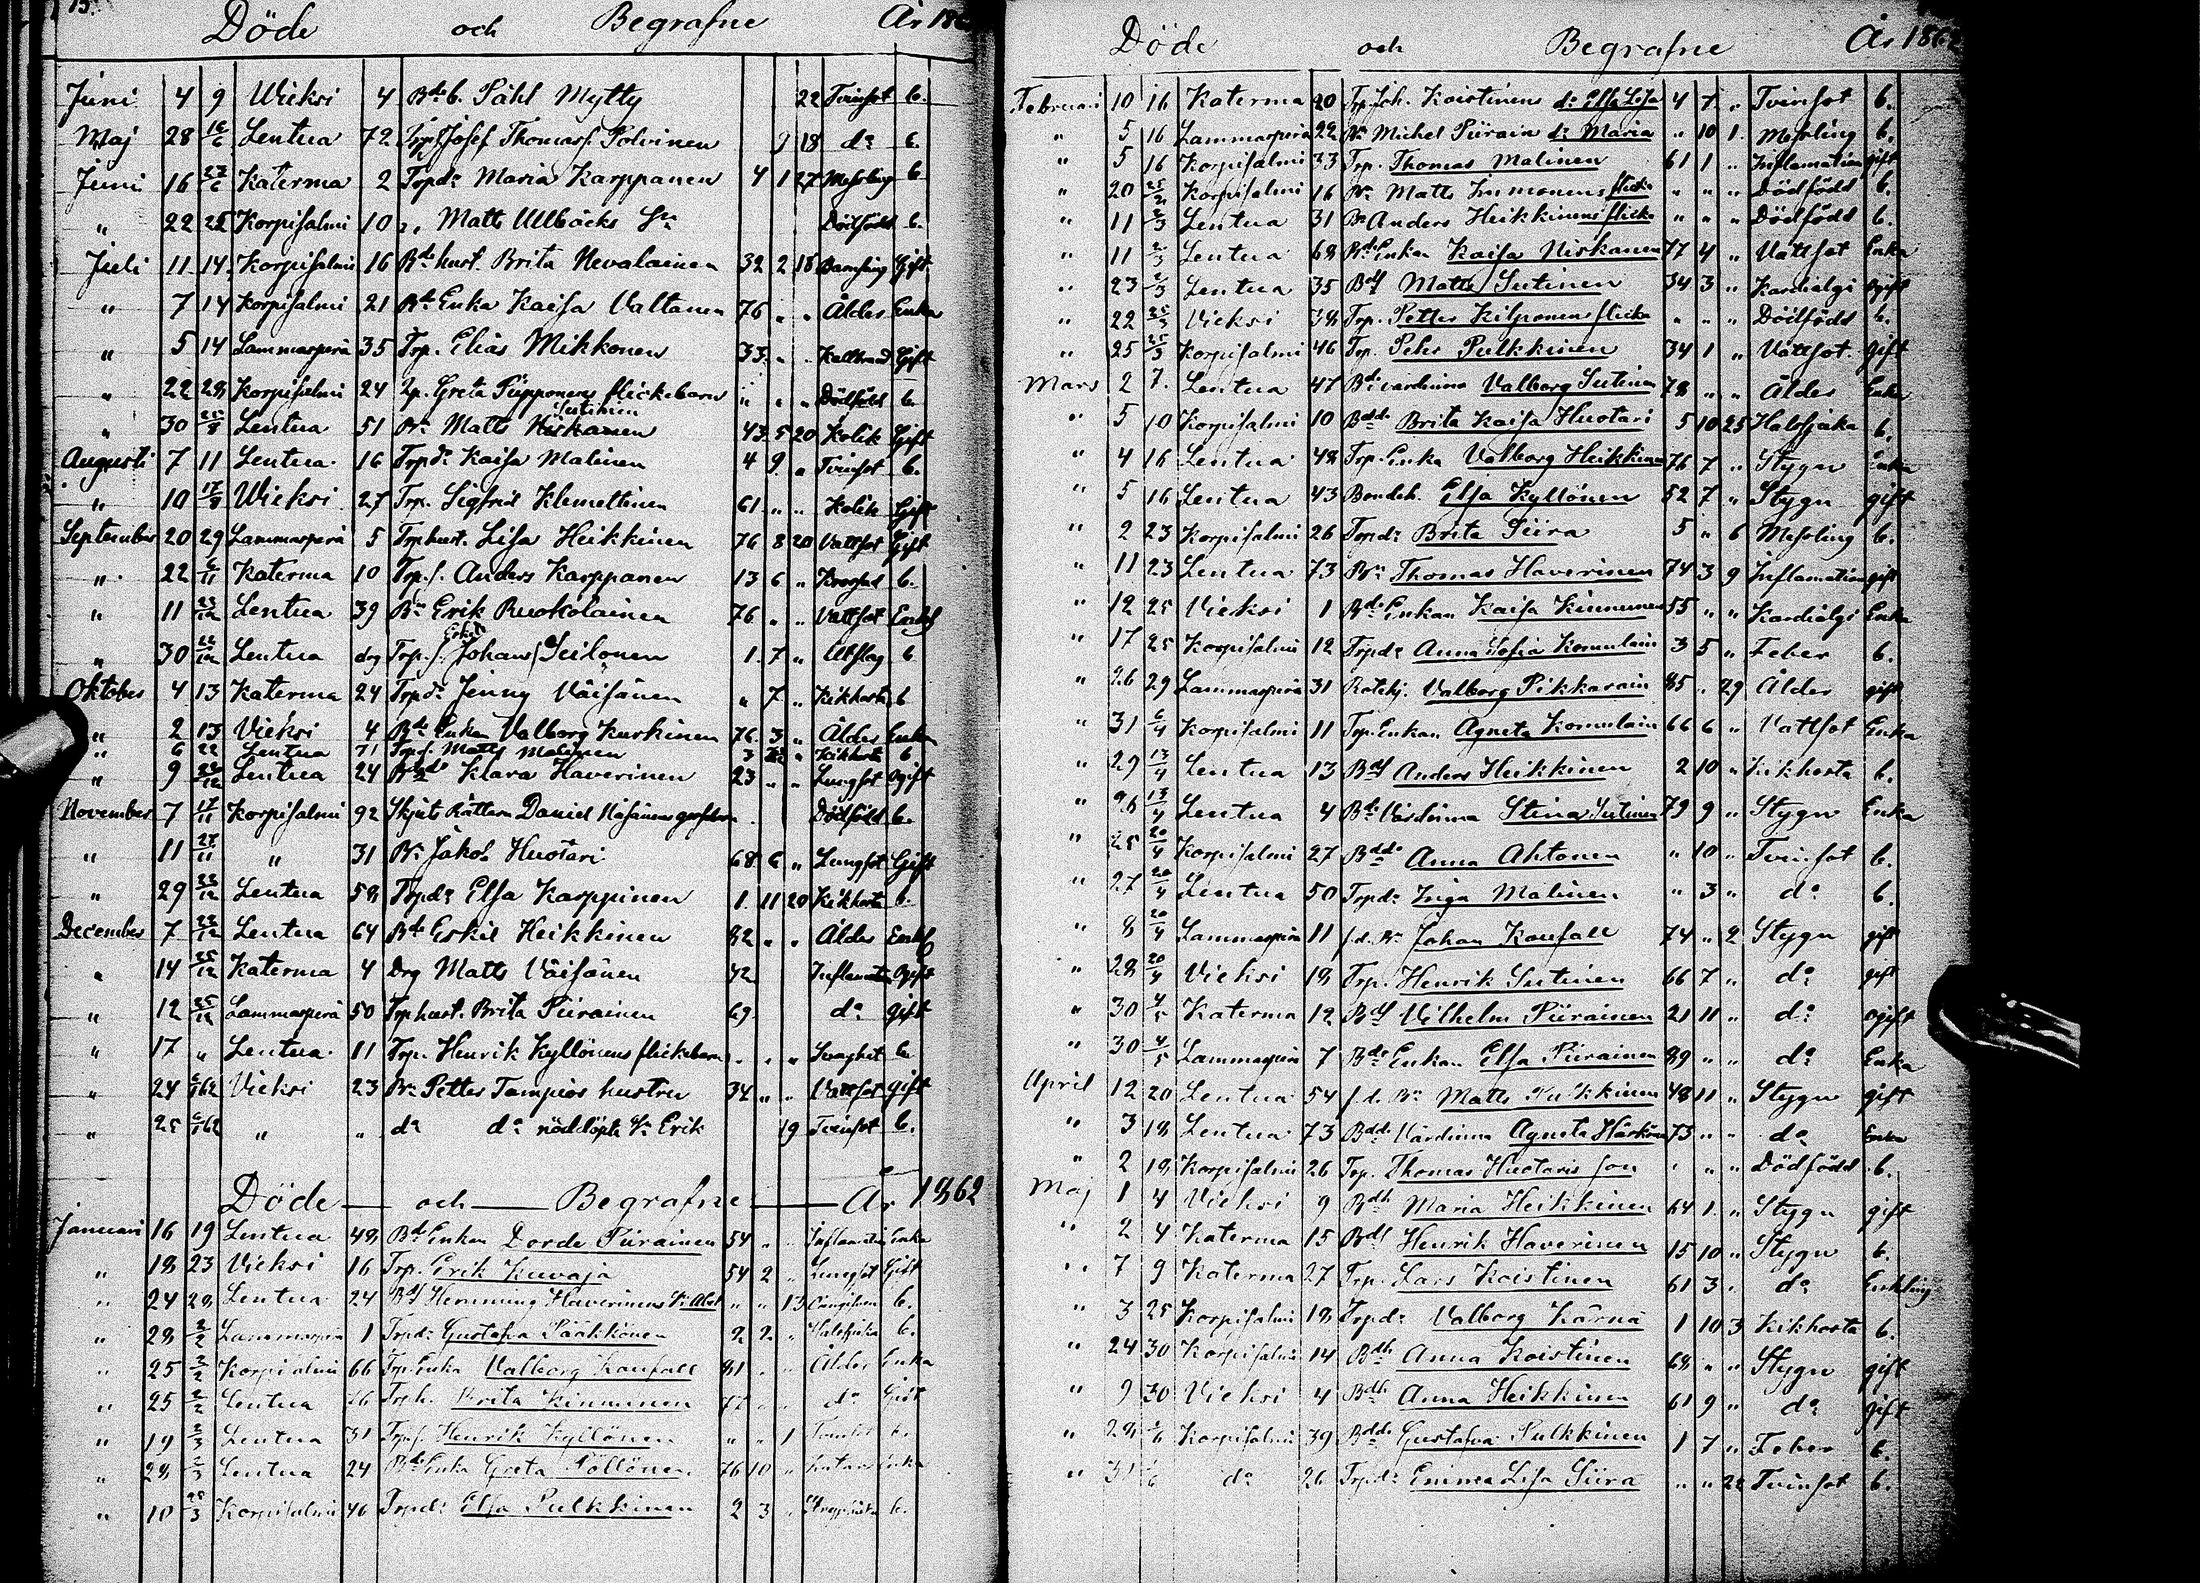 Döde och Begrafne År 186
Juni 4 9 Wieksi 4 Bde b. Påhl Mytty 22 Tvinsot b.
Maj 28 16/6 Lentua 72 Josef Thomass. Polvinen 9 18 do b.
Juni 16 23/6 Katerma 2 Trpdr Maria Karppanen 4 1 27 Messling b
" 22 25 Korpisalmi 10 Matts Ullbäcks Sn Dödfödd b.
Juli 11 14 Korpisalmi 16 Bde hust. Brita Nevalainen 32 2 18 Barnsäng Gift
" 7 14 Korpisalmi 21 Bde Enka Kaisa Valtanen 76 " " Ålder Enka
" 5 14 Lammasperä 35 Trp. Elias Mikkonen 33 " " Kallbrand Gift
" 22 28 Korpisalmi 24 Greta Piipponens flickebarn " " " Dödfödd b.
" 30 Lentua 51 Bn Matts Niskanen Sutinen 43 5 20 Kolik Gift
Augusti 7 11 Lentua 16 Trpdr Kaisa Malinen 4 9 " Tvinsot b.
" 10 17/8 Wieksi 27 Trp. Sigfrid Klemettinen 61 " " Kolik Gift
September 20 29 Lammasperä 5 Trphust. Lisa Heikkinen 76 8 20 Vattsot Gift
" 22 6/11 Katerma 10 Trp.s. Anders Karppanen 13 6 " b.
" 11 23/12 Lentua 39 Bn Erik Ruokolainen 76 " " Vattsot Enkl
" 30 Lentua drg Trp.s. Johan Eskil Seilonen 1 7 " Utslag b
Oktober 4 13 Katerma 24 Trpdr Jenny Väisänen " 7 " Kikhosta b
" 2 13 Vieksi 4 Bde Enkan Valborg Kurkinen 76 3 " Ålder Enka
" 6 22 Lentua 71 Trps. Matts Malinen 3 " Kikhosta b
" 9 Lentua 24 Klara Haverinen 23 " " Lungsot Ogift
November 7 17/11 Korpisalmi 92 Skjuts Rättarn Daniel Dödfödd b.
" 11 27/11 " 31 Bn Jakob Huotari 68 6 " Lungsot Gift
" 29 23/12 Lentua 58 Trpdr Elsa Karppinen 1 11 20 Kikhosta b.
December 7 23/12 Lentua 64 Bde Eskil Heikkinen 82 " " Ålder Enkl
" 14 25/12 Katerma 4 Drg Matts Väisänen 42 Inflamation Ogift
" 12 25/12 Lammasperä 50 Trphust. Brita Piirainen 69 do gift
" 17 " Lentua 11 Trp. Henrik Kyllönens flickebarn " " " Svaghet b.
" 24 6/1 62 Vieksi 23 Bn Petter Tampios hustru 34 " " Vattsot gift
" 25 6/1 62 " " do do nöddöpte Sn Erik 19 Tvinsot b.
Döde och Begrafne År 1862
Januari 16 19 Lentua 48 Bde Enkan Dorde Piirainen 54 " " Inflamation Enka
" 18 23 Vieksi 16 Trp. Erik Kuvaja 54 2 " Lungsot Gift
" 24 28 Lentua 24 Bds Hemming Haverinens Sn Abel " " 13 b.
" 28 2/2 Lammasperä 1 Trpdr Gustafva Pääkkönen 2 2 " Halssjuka b.
" 25 2/2 Korpisalmi 66 Trp Enka Valborg Kaufall 81 " " Ålder Enka
" 25 2/2 Lentua Trph. Brita Kinnunen 77 " " do Gift
" 19 2/3 Lentua 31 Trps. Henrik Kyllönen " " 1 Tvinsot b.
" 28 2/3 Lentua 24 Bde Enka Greta 76 10 " Enka
" 10 25/3 Korpisalmi 46 Trpdr Elsa Pulkkinen 2 3 " b.
Döde och Begrafne År 1862
Februari 10 16 Katerma 20 Trp. Joh. Koistinens dr Elsa Lisa 4 7 " Tvinsot b.
" 5 16 Lammasperä 22 Bn Michel Piirain dr Maria " 10 1 Messling b.
" 5 16 Korpisalmi 33 Trp. Thomas Malinen 61 1 " Inflamation gift
" 20 25/2 Korpisalmi 16 Bn Matts Immonens flicka " " " Dödfödd b.
" 11 2/3 Lentua 31 Bn Anders Heikkinens flicka " " " Dödfödd b.
" 11 2/3 Lentua 68 Bde Enkan Kaisa Niskanen 77 4 " Vattsot Enka
" 23 2/3 Lentua 35 Bds Matts Sutinen 34 3 " Kardialgi ogift
" 22 25/3 Vieksi 38 Trp. Petter Kilponens flicka " " " Dödfödd b.
" 25 25/3 Korpisalmi 46 Trp. Peter Pulkkinen 34 1 " Vattsot gift
Mars 2 7 Lentua 47 Bde värdinna Valborg Sutinen 78 " " Ålder Enka
" 5 10 Korpisalmi 10 Bddr Brita Kaisa Huotari 5 10 25 Halssjuka b.
" 4 16 Lentua 48 Trp. Enka Valborg Heikkinen 76 7 " Stygn Enka
" 5 16 Lentua 43 Bondeh. Elsa Kyllönen 52 7 " Stygn gift
" 2 23 Korpisalmi 26 Trpdr Brita Siira 5 " 6 Messling b.
" 11 23 Lentua 73 Bn Thomas Haverinen 74 3 9 Inflamation gift
" 12 25 Vieksi 1 Bde Enkan Kaisa Kinnunen 55 " " Kardialgi Enka
" 17 25 Korpisalmi 12 Trpdr Anna Sofia Komulain 3 5 " Feber b.
" 26 29 Lammasperä 31 Rotehj. Valborg Pikkarain 85 " 29 Ålder gift
" 31 6/4 Korpisalmi 11 Trp. Enkan Agneta Komulain 66 6 " Vattsot Enka
" 29 13/4 Lentua 13 Bds Anders Heikkinen 2 10 " Kikhosta b.
" 26 13/4 Lentua 4 Bde Värdinna Stina Sutinen 79 9 " Stygn Enka
" 25 20/4 Korpisalmi 27 Bddr Anna Ahtonen " 10 " Tvinsot b.
" 27 20/4 Lentua 50 Trpdr Inga Malinen " 3 " do b.
" 8 20/4 Lammasperä 11 f.d. Bn Johan Kaufall 74 " 2 Stygn gift
" 28 20/4 Vieksi 18 Trp. Henrik Sutinen 66 7 " do gift
" 30 4/5 Katerma 12 Bds Vilhelm Piirainen 21 11 " do ogift
" 30 4/5 Lammasperä 7 Bde Enkan Elsa Piirainen 89 " " do Enka
April 12 20 Lentua 54 f.d. Bn Matts Pulkkinen 48 11 " Stygn gift
" 3 18 Lentua 73 Bdd Värdinna Agneta Härkön 73 " " do Enka
" 2 18 Korpisalmi 26 Trp. Thomas Huotaris son " " " Dödfödd b.
Maj 1 4 Vieksi 9 Bdh Maria Heikkinen 64 1 " Stygn gift
" 2 4 Katerma 15 Bds Henrik Haverinen 15 10 " Stygn b.
" 7 9 Katerma 27 Trp. Lars Koistinen 61 3 " do Enkling
" 3 25 Korpisalmi 18 Trpdr Valborg Kärnä 1 10 3 Kikhosta b.
" 24 30 Korpisalmi 14 Bdh Anna Koistinen 68 " " Stygn gift
" 9 30 Vieksi 4 Bdh Anna Heikkinen 61 9 " do gift
" 28 1/6 Korpisalmi 39 Bddr Gustafva Pulkkinen 1 7 " Feber b.
" 31 1/6 do 26 Trpdr Emma Lisa Siira " " 22 Tvinsot b.